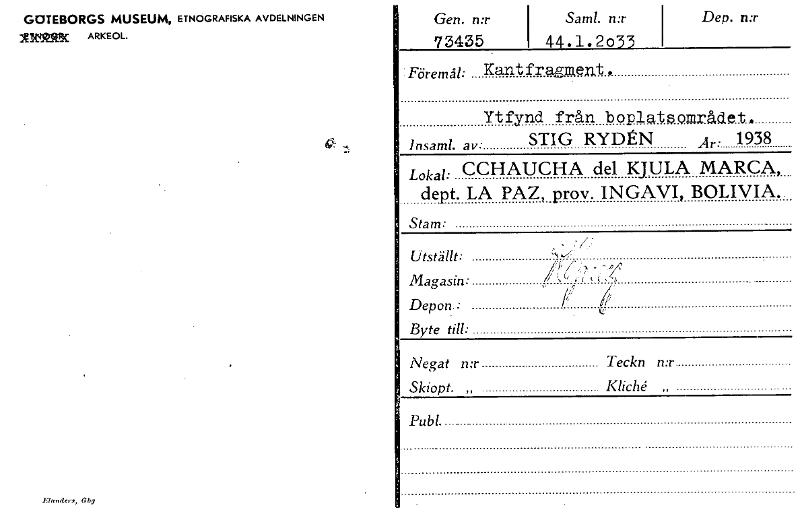 GÖTEBORGS MUSEUM, ETNOGRAFISKA AVDELNINGEN
ARKEOL.
Gen. n:r Saml. n:r Dep. n:r
73435 44.1.2o33
Föremål: Kantfragment.
Ytfynd från boplatsområdet.
Insaml. av: STIG RYDÉN Ar: 1938
Lokal: CCHAUCHA del KJULA MARCA,
dept. LA PAZ, prov. INGAVI, BOLIVIA.
Stam:
Utställt:
Magasin:
Depon.:
Byte till:
Negat n:r Teckn n:r
Skiopt. „ Kliché „
Publ.
Elanders, Gbg